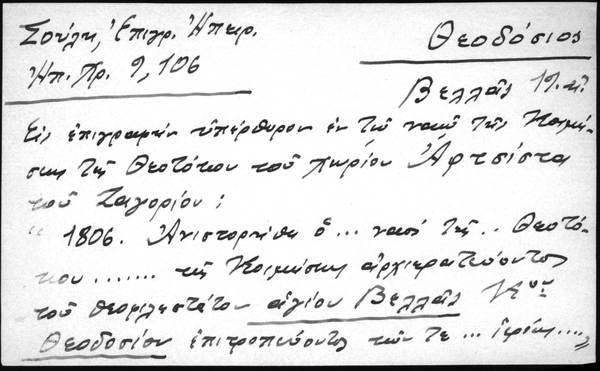 Σούλη, Ἐπιγρ. Ἠπειρ.
Ἠπ. Χρ. 9, 106
Θεοδόσιος
Βελλᾶς 19. αἰ.
Εἰς ἐπιγραφὴν ὑπέρθυρον ἐν τῷ ναῷ τῆς Κοιμή-
σεως τῆς Θεοτόκου τοῦ χωρίου Ἀρτσίστα
τοῦ Ζαγορίου:
" 1806. Ἀνιστορήθη ὁ ... ναός τῆς .. Θεοτό-
κου ....... τῆς Κοιμήσεως ἀρχιερατεύοντος
τοῦ θεοφιλεστάτου ἁγίου Βελλᾶς Κου
Θεοδοσίου ἐπιτροπεύοντος τῶν τε ... ἱερέων .... "